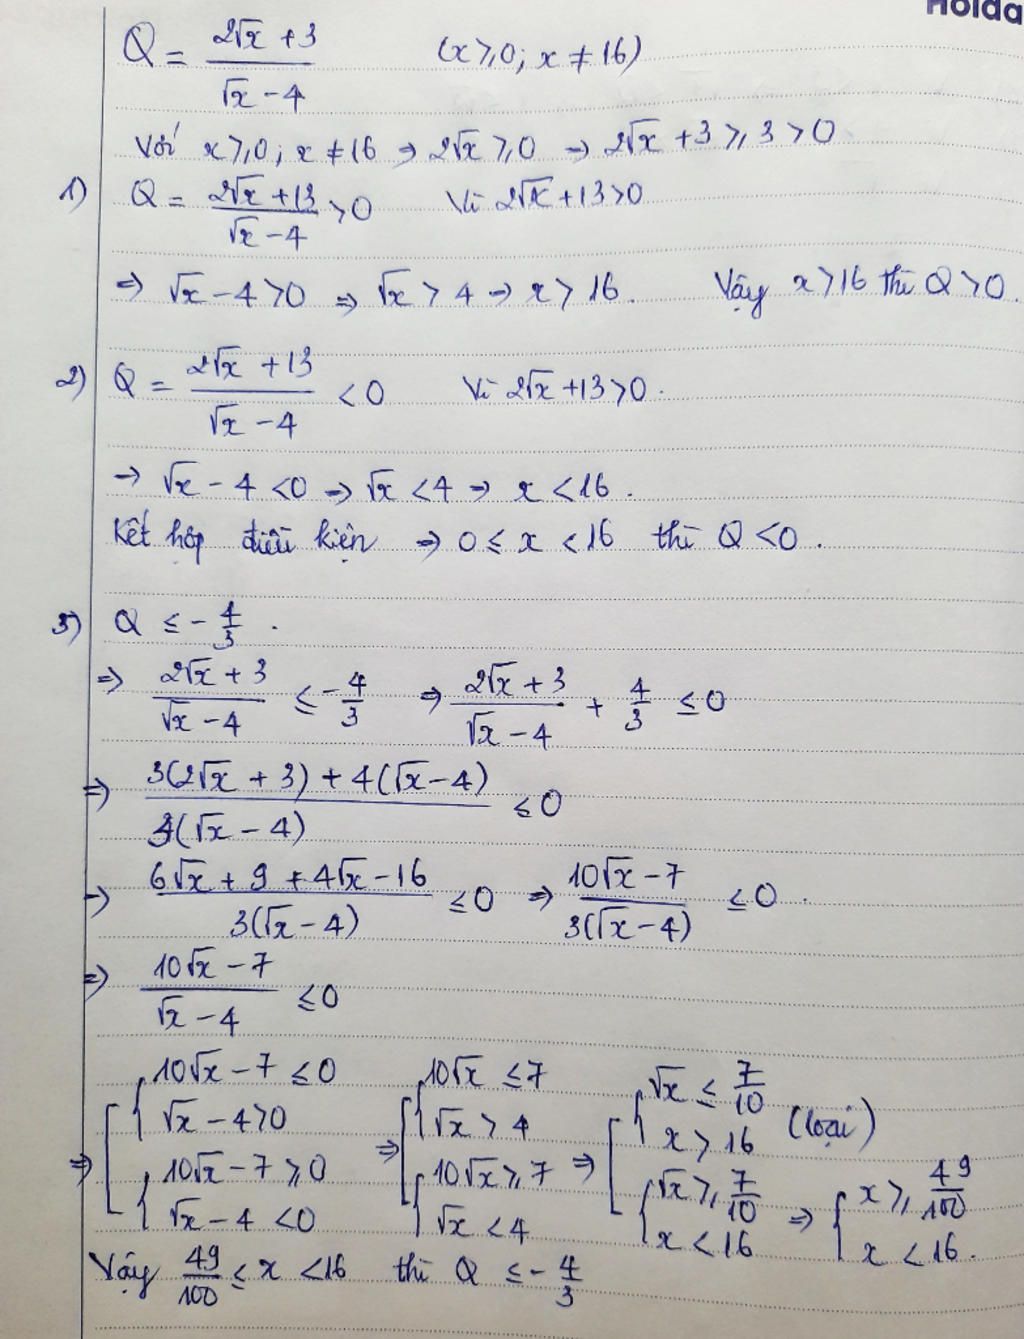 Holda
Q = (2√x + 3)/(√x - 4) (x ≥ 0; x ≠ 16)
Với x ≥ 0; x ≠ 16 ⇒ 2√x ≥ 0 ⇒ 2√x + 3 ≥ 3 > 0
1) Q = (2√x + 13)/(√x - 4) > 0 Vì 2√x + 13 > 0
⇒ √x - 4 > 0 ⇒ √x > 4 ⇒ x > 16. Vậy x > 16 thì Q > 0.
2) Q = (2√x + 13)/(√x - 4) < 0 Vì 2√x + 13 > 0.
⇒ √x - 4 < 0 ⇒ √x < 4 ⇒ x < 16.
Kết hợp điều kiện ⇒ 0 ≤ x < 16 thì Q < 0.
3) Q ≤ -4/3.
⇒ (2√x + 3)/(√x - 4) ≤ -4/3 ⇒ (2√x + 3)/(√x - 4) + 4/3 ≤ 0
⇒ (3(2√x + 3) + 4(√x - 4))/(3(√x - 4)) ≤ 0
⇒ (6√x + 9 + 4√x - 16)/(3(√x - 4)) ≤ 0 ⇒ (10√x - 7)/(3(√x - 4)) ≤ 0.
⇒ (10√x - 7)/(√x - 4) ≤ 0
⇒ [ { 10√x - 7 ≤ 0 ; √x - 4 > 0 } { 10√x - 7 ≥ 0 ; √x - 4 < 0 } ⇒ [ { 10√x ≤ 7 ; √x > 4 } { 10√x ≥ 7 ; √x < 4 } ⇒ [ { √x ≤ 7/10 ; x > 16 } (loại) { √x ≥ 7/10 ; x < 16 } ⇒ { x ≥ 49/100 ; x < 16.
Vậy 49/100 ≤ x < 16 thì Q ≤ -4/3